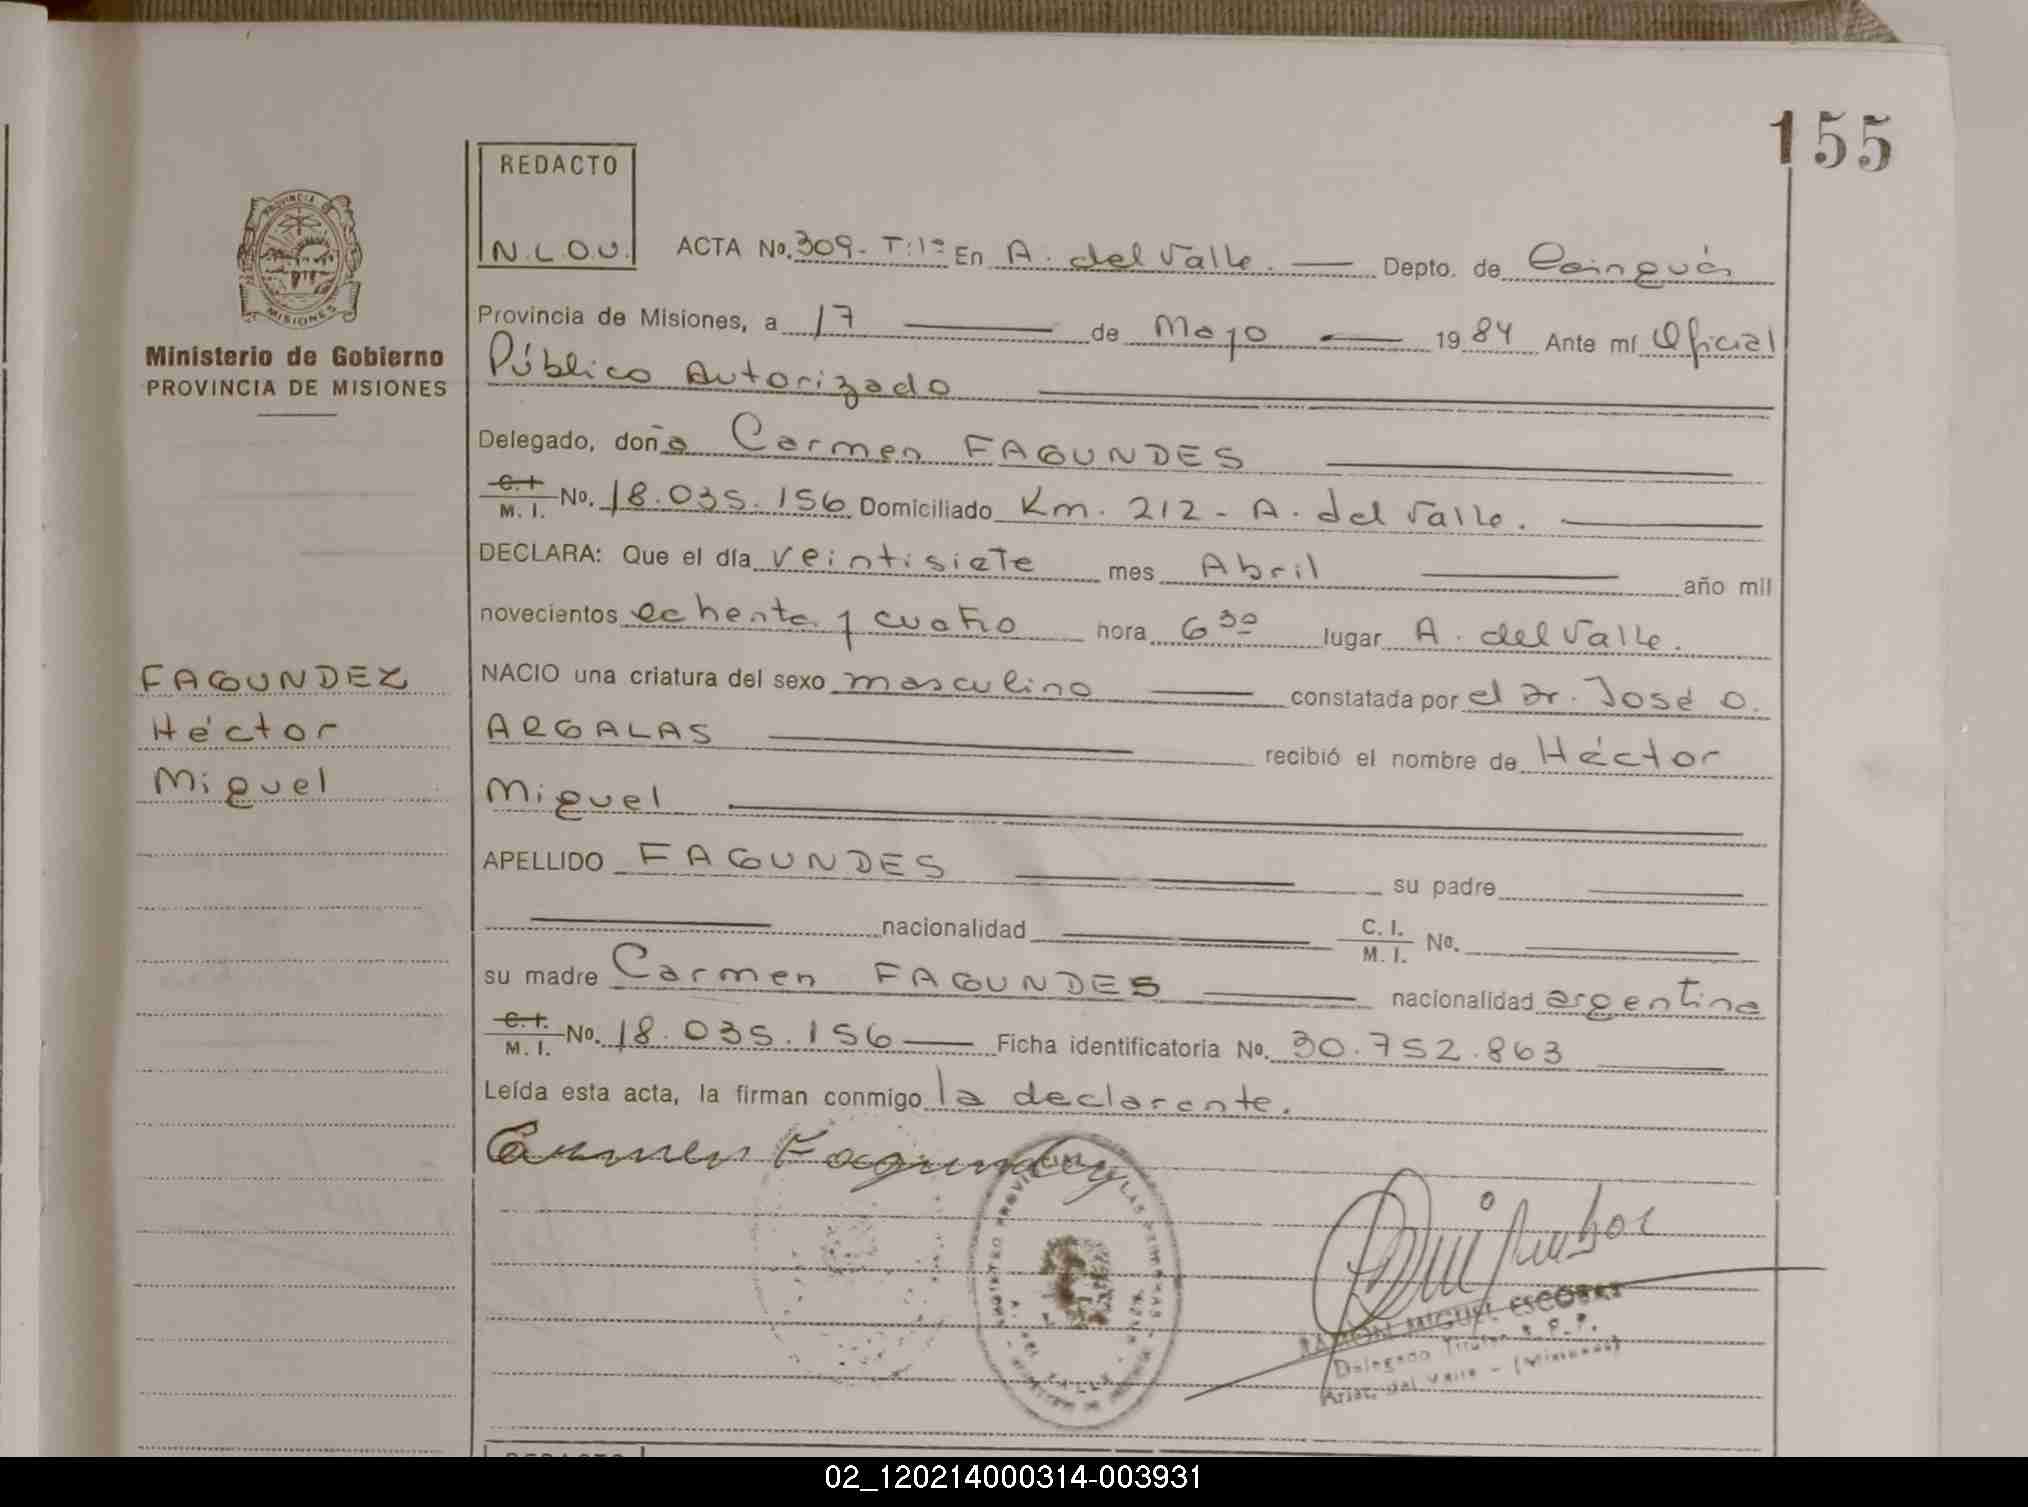 155
REDACTO
N.L.O.U.
ACTA No. 309- T:1º En A. del Valle. Depto. de Cainguás
Provincia de Misiones, a 17 de Mayo 1984 Ante mí Oficial
Público Autorizado
Delegado, doña Carmen FAGUNDES
C.I.
M. I. No. 18.035.156 Domiciliado Km. 212 - A. del Valle.
DECLARA: Que el día veintisiete mes Abril año mil
novecientos ochenta y cuatro hora 6 30 lugar A. del Valle.
NACIO una criatura del sexo masculino constatada por el Dr. José O.
ARGALAS recibió el nombre de Héctor
Miguel
APELLIDO FAGUNDES su padre
nacionalidad C. I.
M. I. No.
su madre Carmen FAGUNDES nacionalidad argentina
C.I.
M. I. No. 18.035.156 Ficha identificatoria No. 30.752.863
Leída esta acta, la firman conmigo la declarante.
Carmen Fagundez
RAMON MIGUEL ESCOBAR
Delegado Titular R.P.P.
Arist. del Valle - (Misiones)
PROVINCIA DE
MISIONES
Ministerio de Gobierno
PROVINCIA DE MISIONES
FAGUNDEZ
Héctor
Miguel
REDACTO
02_120214000314-003931